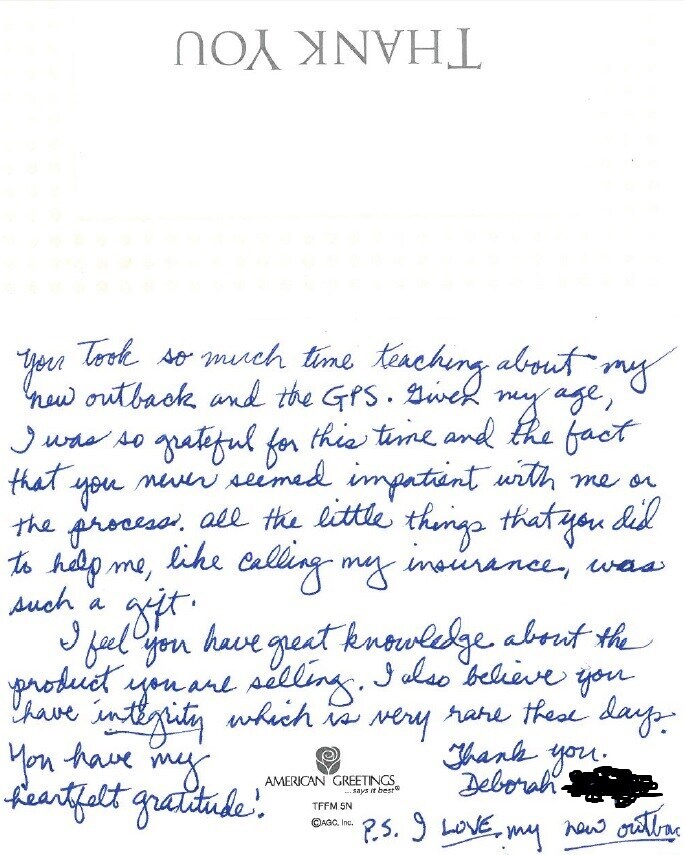 THANK YOU
You took so much time teaching about my
new outback and the GPS. Given my age,
I was so grateful for this time and the fact
that you never seemed impatient with me or
the process. All the little things that you did
to help me, like calling my insurance, was
such a gift.
I feel you have great knowledge about the
product you are selling. I also believe you
have integrity which is very rare these days.
You have my
heartfelt gratitude!
AMERICAN GREETINGS
...says it best®
TFFM 5N
©AGC, Inc.
Thank you.
Deborah
P.S. I LOVE my new outbac